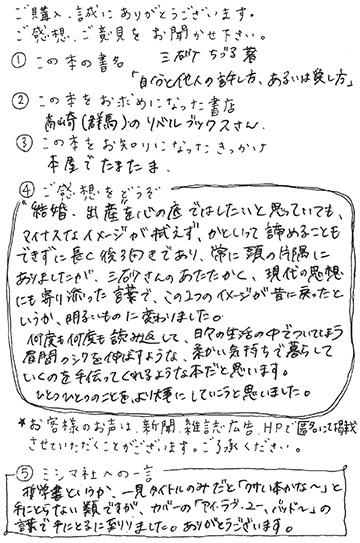 ご購入、誠にありがとうございます。
ご感想、ご意見をお聞かせ下さい。
① この本の書名 三砂ちづる 著
「自分と他人の許し方、あるいは愛し方」
② この本をお求めになった書店
高崎(群馬)のリベルブックスさん
③ この本をお知りになったきっかけ
本屋でたまたま
④ ご感想をどうぞ
"結婚・出産"を心の底ではしたいと思っていても、
マイナスなイメージが拭えず、かといって諦めることも
できずに長く後ろ向きであり、常に頭の片隅に
ありましたが、三砂さんのあたたかく、現代の思想
にも寄り添った言葉で、この2つのイメージが昔に戻ったと
いうか、明るいものに変わりました。
何度も何度も読み返して、日々の生活の中でついてしまう
眉間のシワを伸ばすような、柔かい気持ちで暮らして
いくのを手伝ってくれるような本だと思います。
ひとつひとつのことを、より大事にしていこうと思いました。
*お客様のお声は、新聞、雑誌広告、HPで匿名にて掲載
させていただくことがございます。ご了承ください。
⑤ ミシマ社への一言
哲学書というか、一見タイトルのみだと「クサい本かな〜」と
手にとらない類ですが、カバーの「アイ・ラヴ・ユー、バット〜」の
言葉で手にとるに至りました。ありがとうございます。